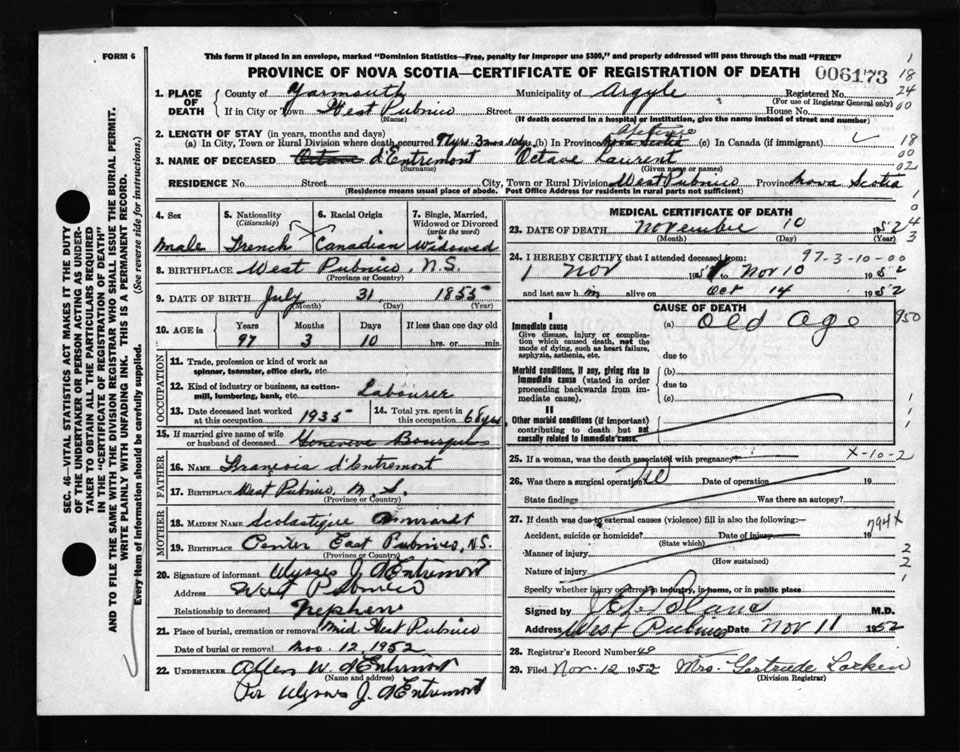 FORM 6
This form if placed in an envelope, marked "Dominion Statistics—Free, penalty for improper use $300," and properly addressed will pass through the mail "FREE"
PROVINCE OF NOVA SCOTIA—CERTIFICATE OF REGISTRATION OF DEATH 006173
1. PLACE OF DEATH County of Yarmouth Municipality of Argyle Registered No.
(For use of Registrar General only)
If in City or Town West Pubnico Street House No.
(Name) (If death occurred in a hospital or institution, give the name instead of street and number)
2. LENGTH OF STAY (in years, months and days)
(a) In City, Town or Rural Division where death occurred 97yrs. 3mos 10dys. (b) In Province Nova Scotia (c) In Canada (if immigrant)
3. NAME OF DECEASED Octave d'Entremont Octave Laurent
(Surname) (Given name or names)
RESIDENCE No. Street City, Town or Rural Division West Pubnico Province Nova Scotia
(Residence means usual place of abode. Post Office Address for residents in rural parts not sufficient)
4. Sex 5. Nationality (Citizenship) 6. Racial Origin 7. Single, Married, Widowed or Divorced (write the word)
Male French Canadian Widowed
8. BIRTHPLACE West Pubnico, N.S.
(Province or Country)
9. DATE OF BIRTH July 31, 1855
(Month) (Day) (Year)
10. AGE in Years Months Days If less than one day old
97 3 10 hrs. or min.
OCCUPATION
11. Trade, profession or kind of work as spinner, teamster, office clerk, etc.
12. Kind of industry or business, as cotton-mill, lumbering, bank, etc. Labourer
13. Date deceased last worked at this occupation 1935 14. Total yrs. spent in this occupation 68 yrs
15. If married give name of wife or husband of deceased Genevieve
FATHER
16. NAME Francois d'Entremont
17. BIRTHPLACE West Pubnico, N.S.
(Province or Country)
MOTHER
18. MAIDEN NAME Scolastique
19. BIRTHPLACE Center East Pubnico, N.S.
(Province or Country)
20. Signature of informant Ulysses J. d'Entremont
Address West Pubnico
Relationship to deceased Nephew
21. Place of burial, cremation or removal Mid. West Pubnico
Date of burial or removal Nov. 12, 1952
22. UNDERTAKER Allen W. d'Entremont
(Name and address)
Per Ulysses J. d'Entremont
MEDICAL CERTIFICATE OF DEATH
23. DATE OF DEATH November 10 1952
(Month) (Day) (Year)
24. I HEREBY CERTIFY that I attended deceased from: 97-3-10-00
1 Nov to Nov 10 1952
and last saw him alive on Oct 14 1952
CAUSE OF DEATH
I
Immediate cause (a) Old Age
Give disease, injury or complication which caused death, not the mode of dying, such as heart failure, asphyxia, asthenia, etc. due to
Morbid conditions, if any, giving rise to immediate cause (stated in order proceeding backwards from immediate cause). (b) due to (c)
II
Other morbid conditions (if important) contributing to death but not causally related to immediate cause.
25. If a woman, was the death associated with pregnancy? X-10-2
26. Was there a surgical operation? No Date of operation 19
State findings Was there an autopsy?
27. If death was due to external causes (violence) fill in also the following:— 794X
Accident, suicide or homicide? Date of injury 19
(State which)
Manner of injury
(How sustained)
Nature of injury
Specify whether injury occurred in industry, in home, or in public place
Signed by M.D.
Address West Pubnico Date Nov 11 1952
28. Registrar's Record Number 49
29. Filed Nov. 12 1952 Mrs. Gertrude Larkin
(Division Registrar)
SEC. 46—VITAL STATISTICS ACT MAKES IT THE DUTY OF THE UNDERTAKER OR PERSON ACTING AS UNDERTAKER TO OBTAIN ALL THE PARTICULARS REQUIRED IN THE "CERTIFICATE OF REGISTRATION OF DEATH" AND TO FILE THE SAME WITH THE DIVISION REGISTRAR WHO SHALL ISSUE THE BURIAL PERMIT.
WRITE PLAINLY WITH UNFADING INK. THIS IS A PERMANENT RECORD.
Every item of information should be carefully supplied. (See reverse side for instructions.)